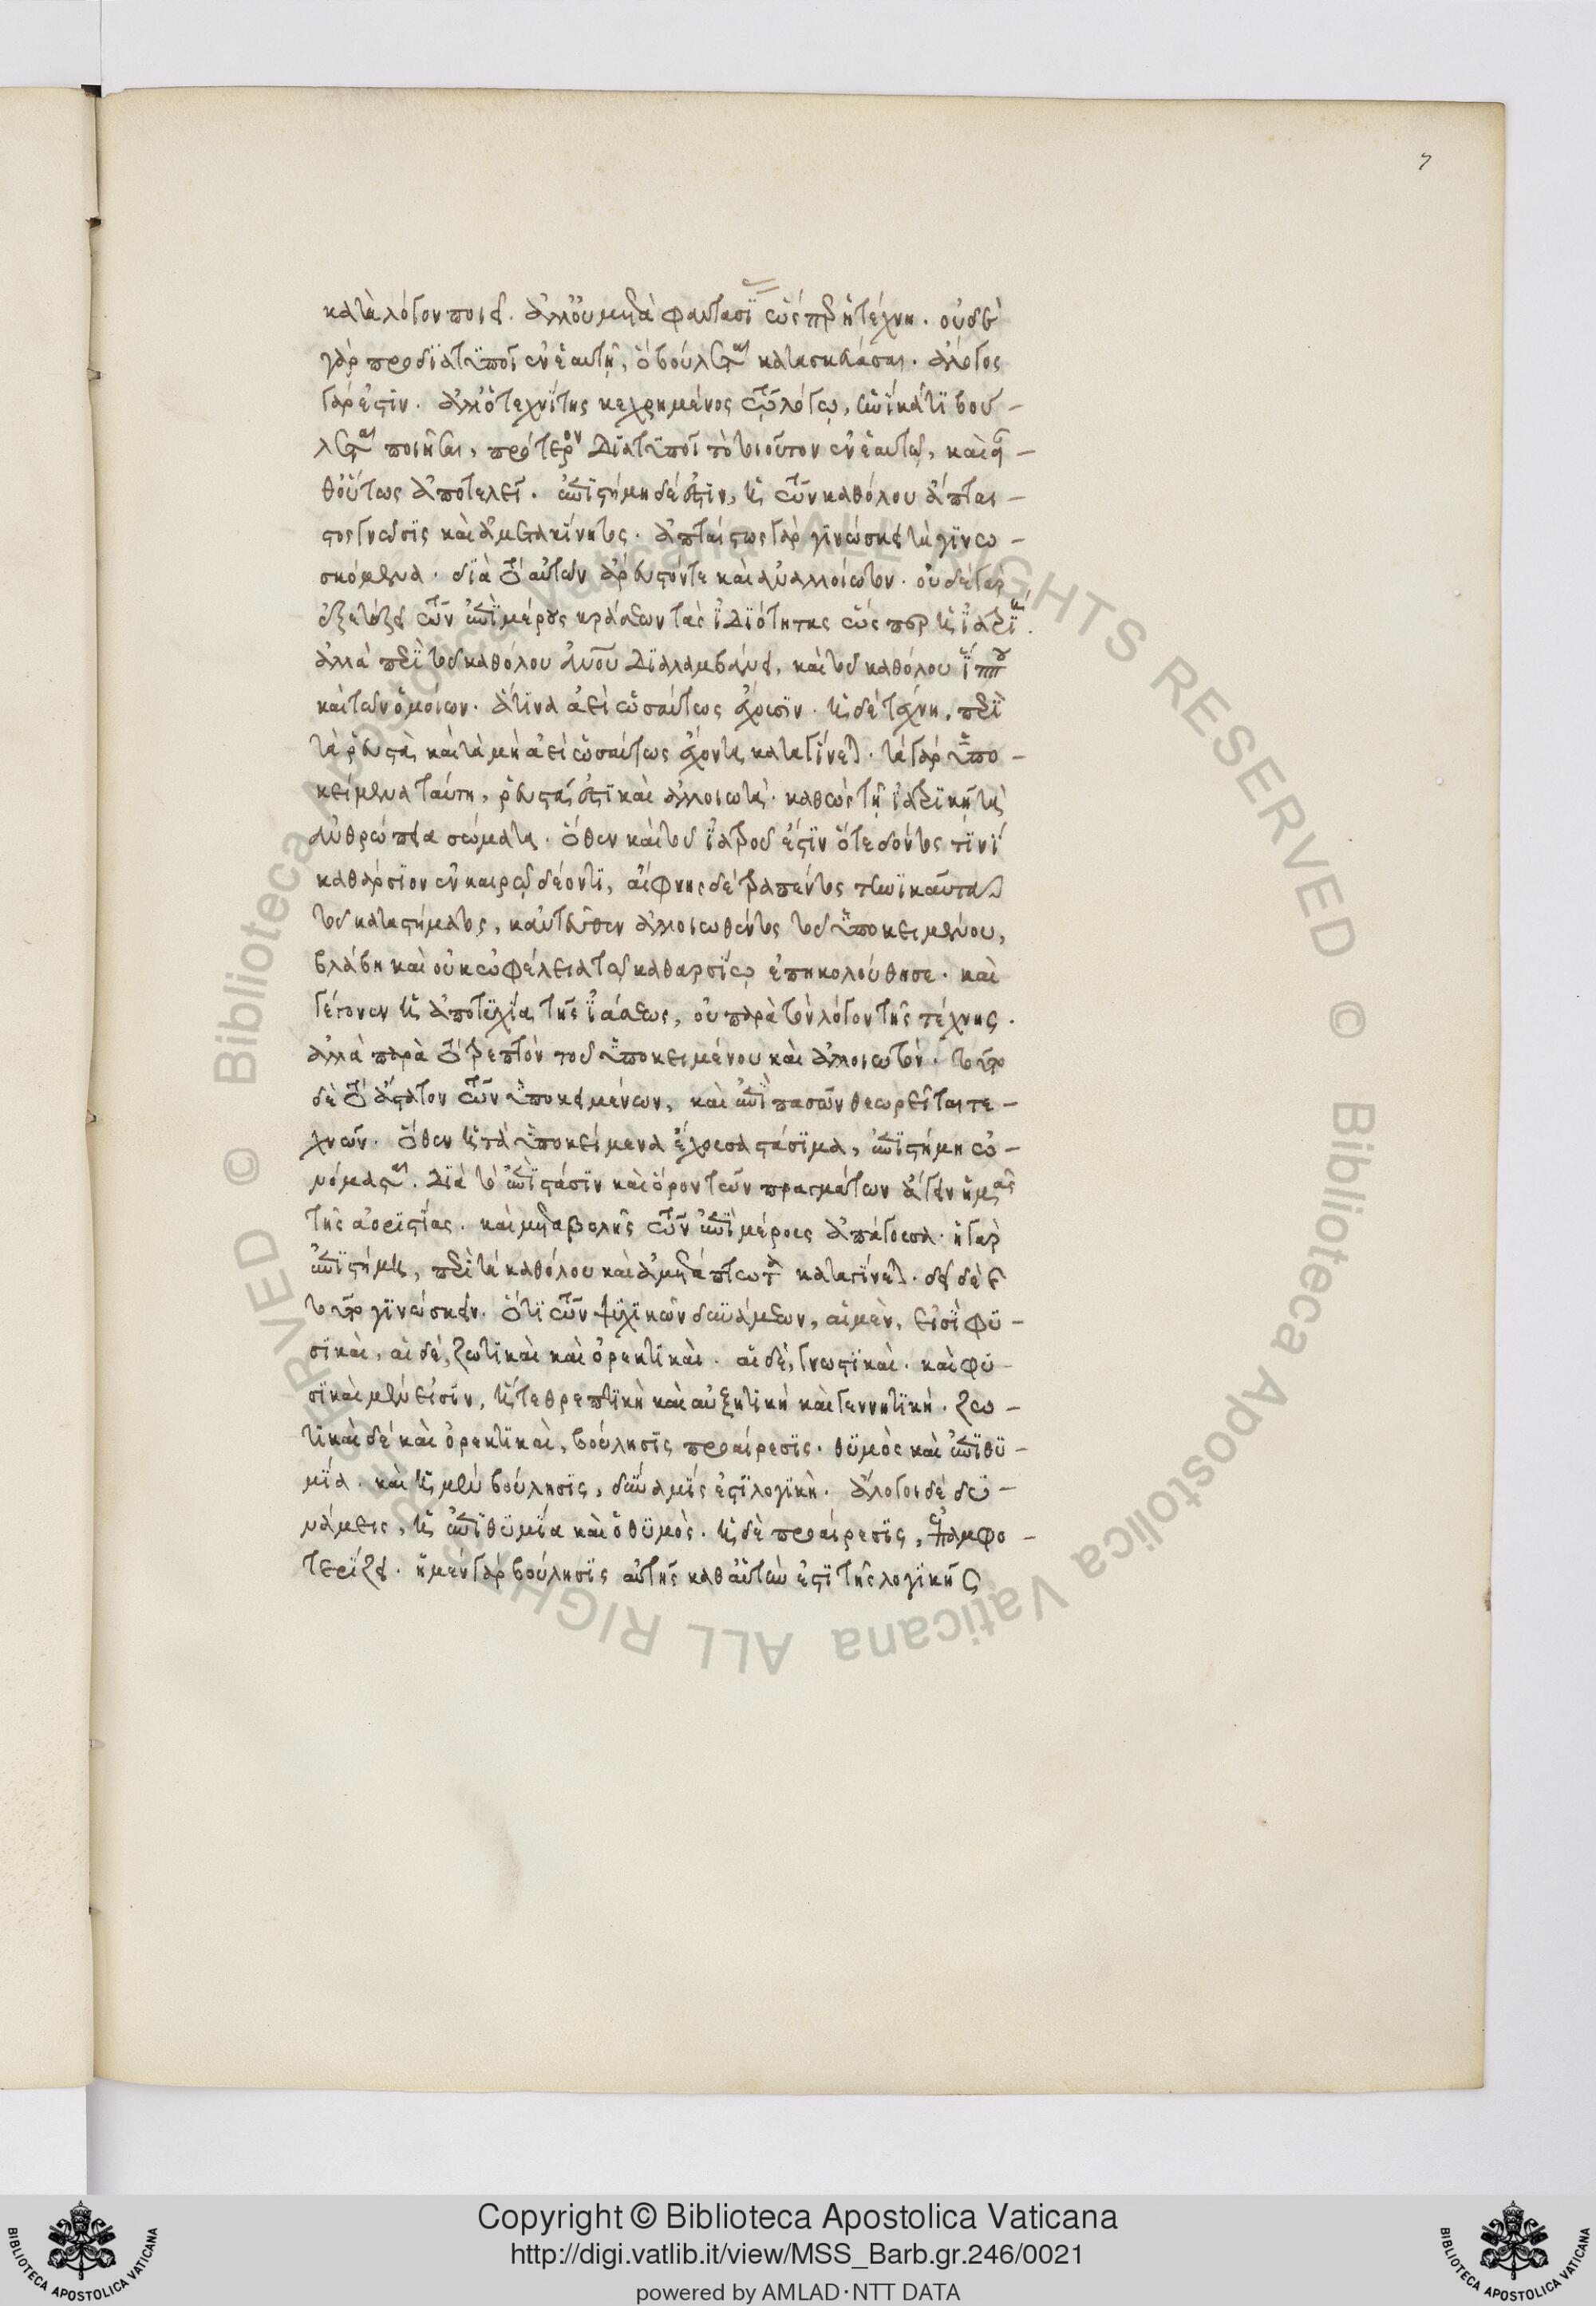 7
κατὰ λόγον ποιεῖ. ἀλλ' οὐ μετὰ φαντασί ὥσπερ ἡ τέχνη. οὐδὲ
γὰρ προδιατυποῖ ἐν ἑαυτῇ, ὃ βούλεται κατασκευάσαι. ἄλογος
γάρ ἐστιν. ἀλλ' ὁ τεχνίτης κεχρημένος τῷ λόγῳ, ἡνίκα τι βού-
λεται ποιῆσαι, πρότερον διατυποῖ τὸ τοιοῦτον ἐν ἑαυτῷ, καὶ
θ' οὕτως ἀποτελεῖ. ἐπιστήμη δέ ἐστιν, ἡ τῶν καθόλου ἄπται-
στος γνῶσις καὶ ἀμετακίνητος. ἀπταίστως γὰρ γινώσκει τὰ γινω-
σκόμενα. διὰ τὸ αὐτῶν ἄρευστόν τε καὶ ἀναλλοίωτον. οὐδὲ γὰρ
ἐξετάζει τῶν ἐπιμέρους κράσεων τὰς ἰδιότητας ὥσπερ ἡ ἰατρική.
ἀλλὰ περὶ τοῦ καθόλου ἀνου διαλαμβάνει, καὶ τοῦ καθόλου ἵππου
καὶ τῶν ὁμοίων. ἅτινα ἀεὶ ὡσαύτως ἔχουσιν. ἡ δὲ τέχνη, περὶ
τὰ ῥευστὰ καὶ τὰ μὴ ἀεὶ ὡσαύτως ἔχοντα καταγίνεται. τὰ γὰρ ὑπο-
κείμενα ταύτῃ, ῥευστά ἐστι καὶ ἀλλοιωτά. καθὼς τῇ ἰατρικῇ τὰ
ἀνθρώπεια σώματα. ὅθεν καὶ τοῦ ἰατροῦ ἐστιν ὅτε δόντος τινί
καθάρσιον ἐν καιρῷ δέοντι, αἴφνης δὲ τραπέντος τηνικαῦτα
τοῦ καταστήματος, κἀντεῦθεν ἀλλοιωθέντος τοῦ ὑποκειμένου,
βλάβη καὶ οὐκ ὠφέλεια τῷ καθαρσίῳ ἐπηκολούθησε. καὶ
γέγονεν ἡ ἀποτυχία τῆς ἰάσεως, οὐ παρὰ τὸν λόγον τῆς τέχνης.
ἀλλὰ παρὰ τὸ τρεπτὸν τοῦ ὑποκειμένου καὶ ἀλλοιωτόν. τοῦτο
δὲ τὸ ἄστατον τῶν ὑποκειμένων, καὶ ἐπὶ πασῶν θεωρεῖται τε-
χνῶν. ὅθεν ἡ τὰ ὑποκείμενα ἔχουσα στάσιμα, ἐπιστήμη ὠ-
νόμασται. διὰ τὸ ἐπὶ στάσιν καὶ ὅρον τῶν πραγμάτων ἄγειν ἡμᾶς
τῆς ἀοριστίας. καὶ μεταβολῆς τῶν ἐπιμέρους ἀπάγουσα. ἡ γὰρ
ἐπιστήμη, περὶ τὰ καθόλου καὶ ἀμετάπτωτα καταγίνεται. δεῖ δὲ
τοῦτο γινώσκειν. ὅτι τῶν ψυχικῶν δυνάμεων, αἱ μὲν, εἰσὶ φυ-
σικαὶ, αἱ δὲ, ζωτικαὶ καὶ ὀρεκτικαὶ. αἱ δὲ, γνωστικαὶ. καὶ φυ-
σικαὶ μὲν εἰσὶν, ἥ τε θρεπτικὴ καὶ αὐξητικὴ καὶ γεννητικὴ. ζω-
τικαὶ δὲ καὶ ὀρεκτικαὶ, βούλησις προαίρεσις. θυμὸς καὶ ἐπιθυ-
μία. καὶ ἡ μὲν βούλησις, δύναμίς ἐστι λογικὴ. ἄλογοι δὲ δυ-
νάμεις, ἡ ἐπιθυμία καὶ ὁ θυμὸς. ἡ δὲ προαίρεσις, ἐπαμφο-
τερίζει. ἡ μὲν γὰρ βούλησις αὐτὴ καθ' αὑτὴν ἐπὶ τῆς λογικῆς
Copyright © Biblioteca Apostolica Vaticana
http://digi.vatlib.it/view/MSS_Barb.gr.246/0021
powered by AMLAD·NTT DATA